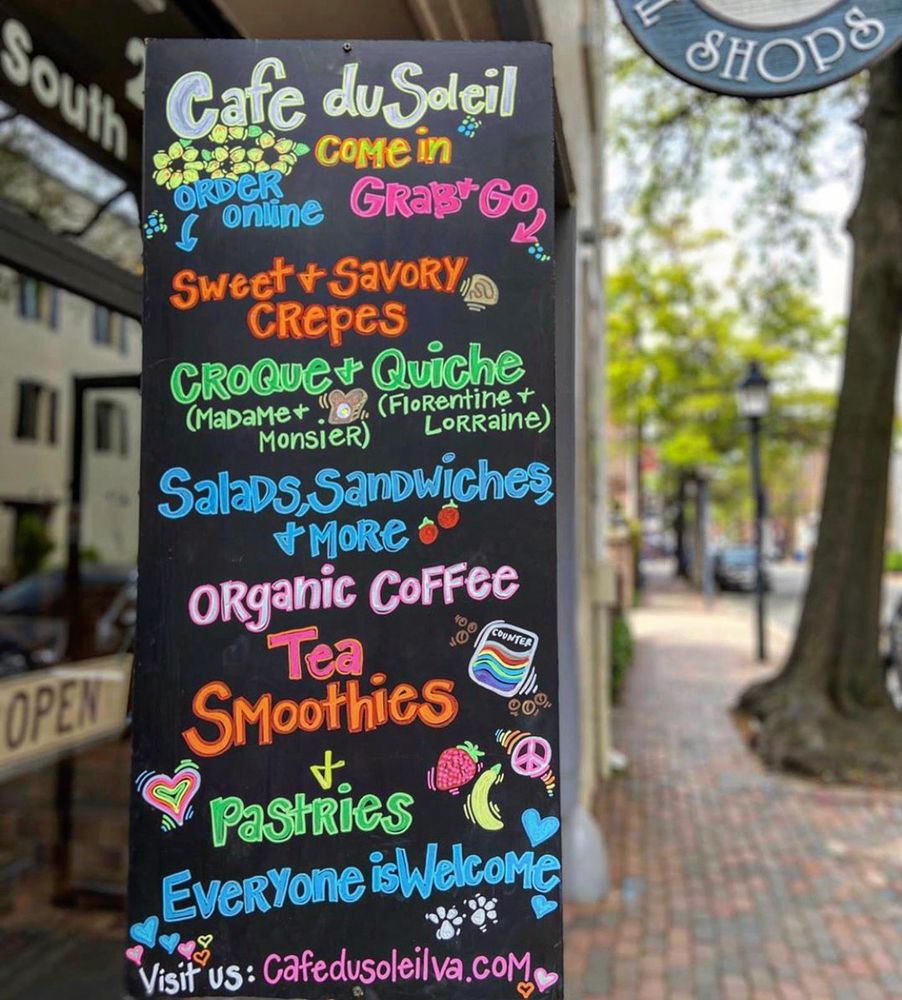 2
South
SHOPS
Cafe du Soleil
COME in
ORDER
online
GRAB + GO
SWEET + SAVORY
CRepes
CROQUE + QUICHE
(MADAME +
MONSIER)
(FLORENTINE +
LORRAINE)
SALADS, SANDWICHES,
+ MORE
ORganic COFFEE
COUNTER
Tea
SMOOTHIES
+
PASTRIES
EVERYONE is WELCOME
Visit us: Cafedusoleilva.com
OPEN